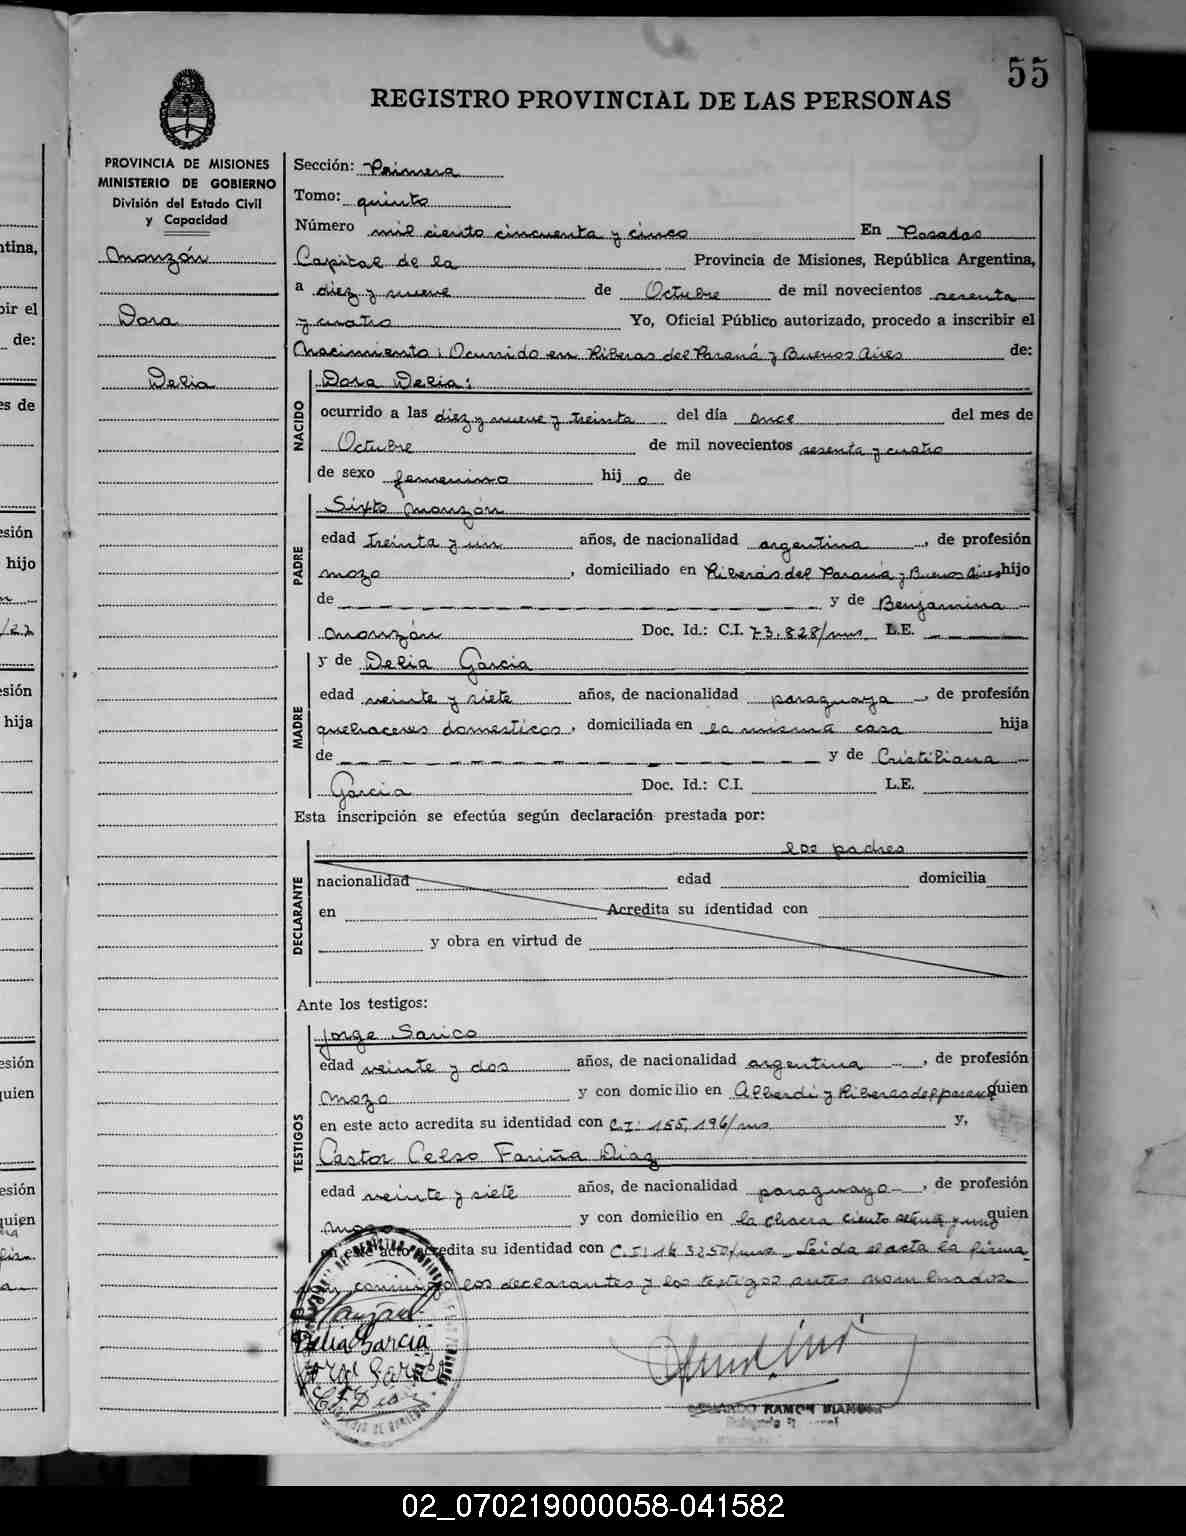 55
REGISTRO PROVINCIAL DE LAS PERSONAS
PROVINCIA DE MISIONES
MINISTERIO DE GOBIERNO
División del Estado Civil
y Capacidad
Monzón
Dora
Delia
Sección: Primera
Tomo: quinto
Número mil ciento cincuenta y cinco En Posadas
Capital de la Provincia de Misiones, República Argentina,
a diez y nueve de Octubre de mil novecientos sesenta
y cuatro Yo, Oficial Público autorizado, procedo a inscribir el
Nacimiento: Ocurrido en Riberas del Paraná y Buenos Aires de:
NACIDO
Dora Delia:
ocurrido a las diez y nueve y treinta del día once del mes de
Octubre de mil novecientos sesenta y cuatro
de sexo femenino hij o de
PADRE
Sixto Monzón
edad treinta y un años, de nacionalidad argentina, de profesión
mozo, domiciliado en Riberas del Paraná y Buenos Aires hijo
de y de Benjamina
Monzón Doc. Id.: C.I. 73.828/mns L.E.
MADRE
y de Delia Garcia
edad veinte y siete años, de nacionalidad paraguaya, de profesión
quehaceres domesticos, domiciliada en la misma casa hija
de y de Cristiliana
Garcia Doc. Id.: C.I. L.E.
Esta inscripción se efectúa según declaración prestada por:
DECLARANTE
los padres
nacionalidad edad domicilia
en Acredita su identidad con
y obra en virtud de
Ante los testigos:
TESTIGOS
Jorge Sarico
edad veinte y dos años, de nacionalidad argentina, de profesión
mozo y con domicilio en Alberdi y Riberas del parana quien
en este acto acredita su identidad con C.I: 155.196/mns y,
Castor Celso Fariña Diaz
edad veinte y siete años, de nacionalidad paraguayo, de profesión
mozo y con domicilio en la chacra ciento setenta y uno quien
en este acto acredita su identidad con C.I: Leida el acta la firma
conmigo los declarantes y los testigos antes nombrados.
Monzón
Delia Garcia
Jorge Sarico
C F Diaz
RAMON
02_070219000058-041582